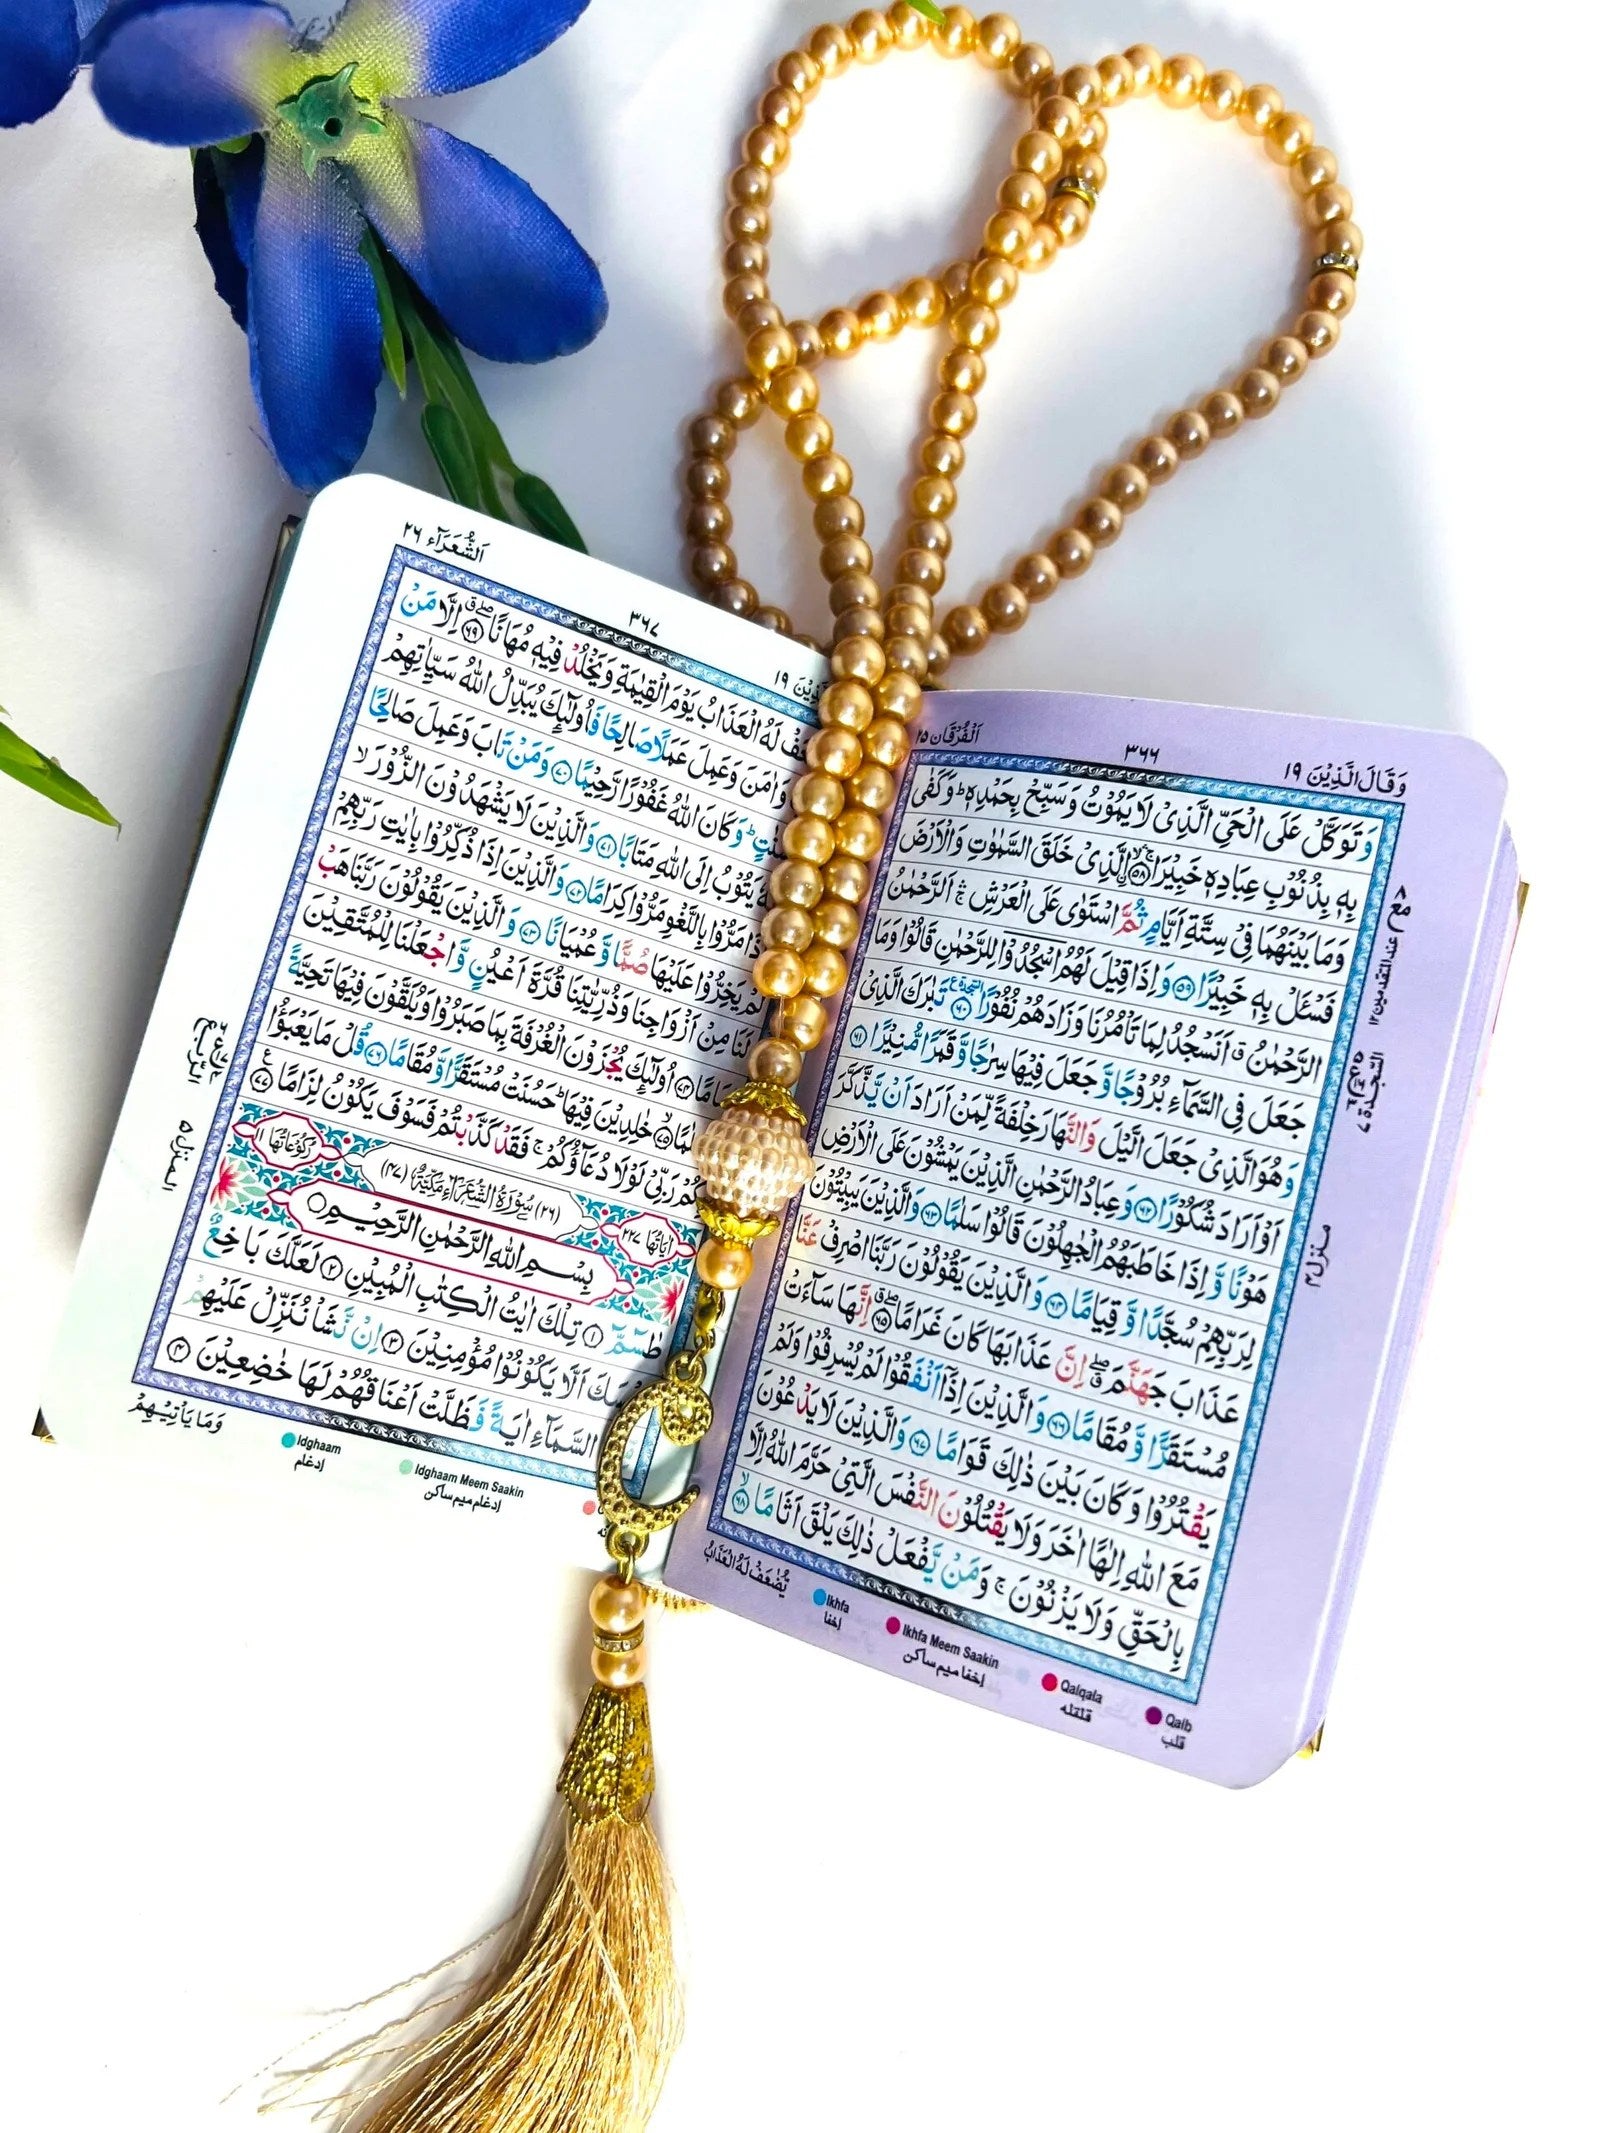 وَقَالَ الَّذِیْنَ ١٩
٣٦٦
اَلْفُرْقَان ٢٥
وَتَوَكَّلْ عَلَى الْحَیِّ الَّذِیْ لَا یَمُوْتُ وَسَبِّحْ بِحَمْدِهٖ ؕ وَكَفٰى
بِهٖ بِذُنُوْبِ عِبَادِهٖ خَبِیْرَا ۟ۚۛ ﴿٥٨﴾ الَّذِیْ خَلَقَ السَّمٰوٰتِ وَالْاَرْضَ
وَمَا بَیْنَهُمَا فِیْ سِتَّةِ اَیَّامٍ ثُمَّ اسْتَوٰى عَلَى الْعَرْشِ ۛۚ اَلرَّحْمٰنُ
فَسْـَٔلْ بِهٖ خَبِیْرًا ﴿٥٩﴾ وَاِذَا قِیْلَ لَهُمُ اسْجُدُوْا لِلرَّحْمٰنِ قَالُوْا وَمَا
الرَّحْمٰنُ ۗ اَنَسْجُدُ لِمَا تَاْمُرُنَا وَزَادَهُمْ نُفُوْرًا ﴿٦٠﴾ تَبٰرَكَ الَّذِیْ
جَعَلَ فِی السَّمَآءِ بُرُوْجًا وَّجَعَلَ فِیْهَا سِرٰجًا وَّقَمَرًا مُّنِیْرًا ﴿٦١﴾
وَهُوَ الَّذِیْ جَعَلَ الَّیْلَ وَالنَّهَارَ خِلْفَةً لِّمَنْ اَرَادَ اَنْ یَّذَّكَّرَ
اَوْ اَرَادَ شُكُوْرًا ﴿٦٢﴾ وَعِبَادُ الرَّحْمٰنِ الَّذِیْنَ یَمْشُوْنَ عَلَى الْاَرْضِ
هَوْنًا وَّاِذَا خَاطَبَهُمُ الْجٰهِلُوْنَ قَالُوْا سَلٰمًا ﴿٦٣﴾ وَالَّذِیْنَ یَبِیْتُوْنَ
لِرَبِّهِمْ سُجَّدًا وَّقِیَامًا ﴿٦٤﴾ وَالَّذِیْنَ یَقُوْلُوْنَ رَبَّنَا اصْرِفْ عَنَّا
عَذَابَ جَهَنَّمَ ۖ اِنَّ عَذَابَهَا كَانَ غَرَامًا ﴿٦٥﴾ اِنَّهَا سَآءَتْ
مُسْتَقَرًّا وَّمُقَامًا ﴿٦٦﴾ وَالَّذِیْنَ اِذَاۤ اَنْفَقُوْا لَمْ یُسْرِفُوْا وَلَمْ
یَقْتُرُوْا وَكَانَ بَیْنَ ذٰلِكَ قَوَامًا ﴿٦٧﴾ وَالَّذِیْنَ لَا یَدْعُوْنَ
مَعَ اللّٰهِ اِلٰهًا اٰخَرَ وَلَا یَقْتُلُوْنَ النَّفْسَ الَّتِیْ حَرَّمَ اللّٰهُ اِلَّا
بِالْحَقِّ وَلَا یَزْنُوْنَ ۚ وَمَنْ یَّفْعَلْ ذٰلِكَ یَلْقَ اَثَامًا ﴿٦٨﴾
یُّضٰعَفْ لَهُ الْعَذَابُ
مع
عند المتقدمین ١٢
السجدة ٧
منزل ٤
Ikhfa
إخفا
Ikhfa Meem Saakin
إخفا میم ساکن
Qalqala
قلقله
Qalb
قلب
١٩
٣٦٧
اَلشُّعَرَآء ٢٦
لَهُ الْعَذَابُ یَوْمَ الْقِیٰمَةِ وَیَخْلُدْ فِیْهٖ مُهَانًا ﴿٦٩﴾ اِلَّا مَنْ
وَاٰمَنَ وَعَمِلَ عَمَلًا صَالِحًا فَاُولٰٓئِكَ یُبَدِّلُ اللّٰهُ سَیِّاٰتِهِمْ
وَكَانَ اللّٰهُ غَفُوْرًا رَّحِیْمًا ﴿٧٠﴾ وَمَنْ تَابَ وَعَمِلَ صَالِحًا
یَتُوْبُ اِلَى اللّٰهِ مَتَابًا ﴿٧١﴾ وَالَّذِیْنَ لَا یَشْهَدُوْنَ الزُّوْرَ ۙ
مَرُّوْا بِاللَّغْوِ مَرُّوْا كِرَامًا ﴿٧٢﴾ وَالَّذِیْنَ اِذَا ذُكِّرُوْا بِاٰیٰتِ رَبِّهِمْ
لَمْ یَخِرُّوْا عَلَیْهَا صُمًّا وَّعُمْیَانًا ﴿٧٣﴾ وَالَّذِیْنَ یَقُوْلُوْنَ رَبَّنَا هَبْ
لَنَا مِنْ اَزْوَاجِنَا وَذُرِّیّٰتِنَا قُرَّةَ اَعْیُنٍ وَّاجْعَلْنَا لِلْمُتَّقِیْنَ
﴿٧٤﴾ اُولٰٓئِكَ یُجْزَوْنَ الْغُرْفَةَ بِمَا صَبَرُوْا وَیُلَقَّوْنَ فِیْهَا تَحِیَّةً
﴿٧٥﴾ خٰلِدِیْنَ فِیْهَا ؕ حَسُنَتْ مُسْتَقَرًّا وَّمُقَامًا ﴿٧٦﴾ قُلْ مَا یَعْبَؤُا
رَبِّیْ لَوْلَا دُعَآؤُكُمْ ۚ فَقَدْ كَذَّبْتُمْ فَسَوْفَ یَكُوْنُ لِزَامًا ﴿٧٧﴾
اٰیَاتُهَا ٢٢٧
(٢٦) سُوْرَةُ الشُّعَرَآءِ مَكِّیَّةٌ (٤٧)
رُكُوْعَاتُهَا ١١
بِسْمِ اللّٰهِ الرَّحْمٰنِ الرَّحِیْمِ
طٰسٓمّٓ ﴿١﴾ تِلْكَ اٰیٰتُ الْكِتٰبِ الْمُبِیْنِ ﴿٢﴾ لَعَلَّكَ بَاخِعٌ
اَلَّا یَكُوْنُوْا مُؤْمِنِیْنَ ﴿٣﴾ اِنْ نَّشَاْ نُنَزِّلْ عَلَیْهِمْ
السَّمَآءِ اٰیَةً فَظَلَّتْ اَعْنَاقُهُمْ لَهَا خٰضِعِیْنَ ﴿٤﴾
وَمَا یَاْتِیْهِمْ
الربع
المنزل ٥
Idghaam
إدغام
Idghaam Meem Saakin
إدغام میم ساکن